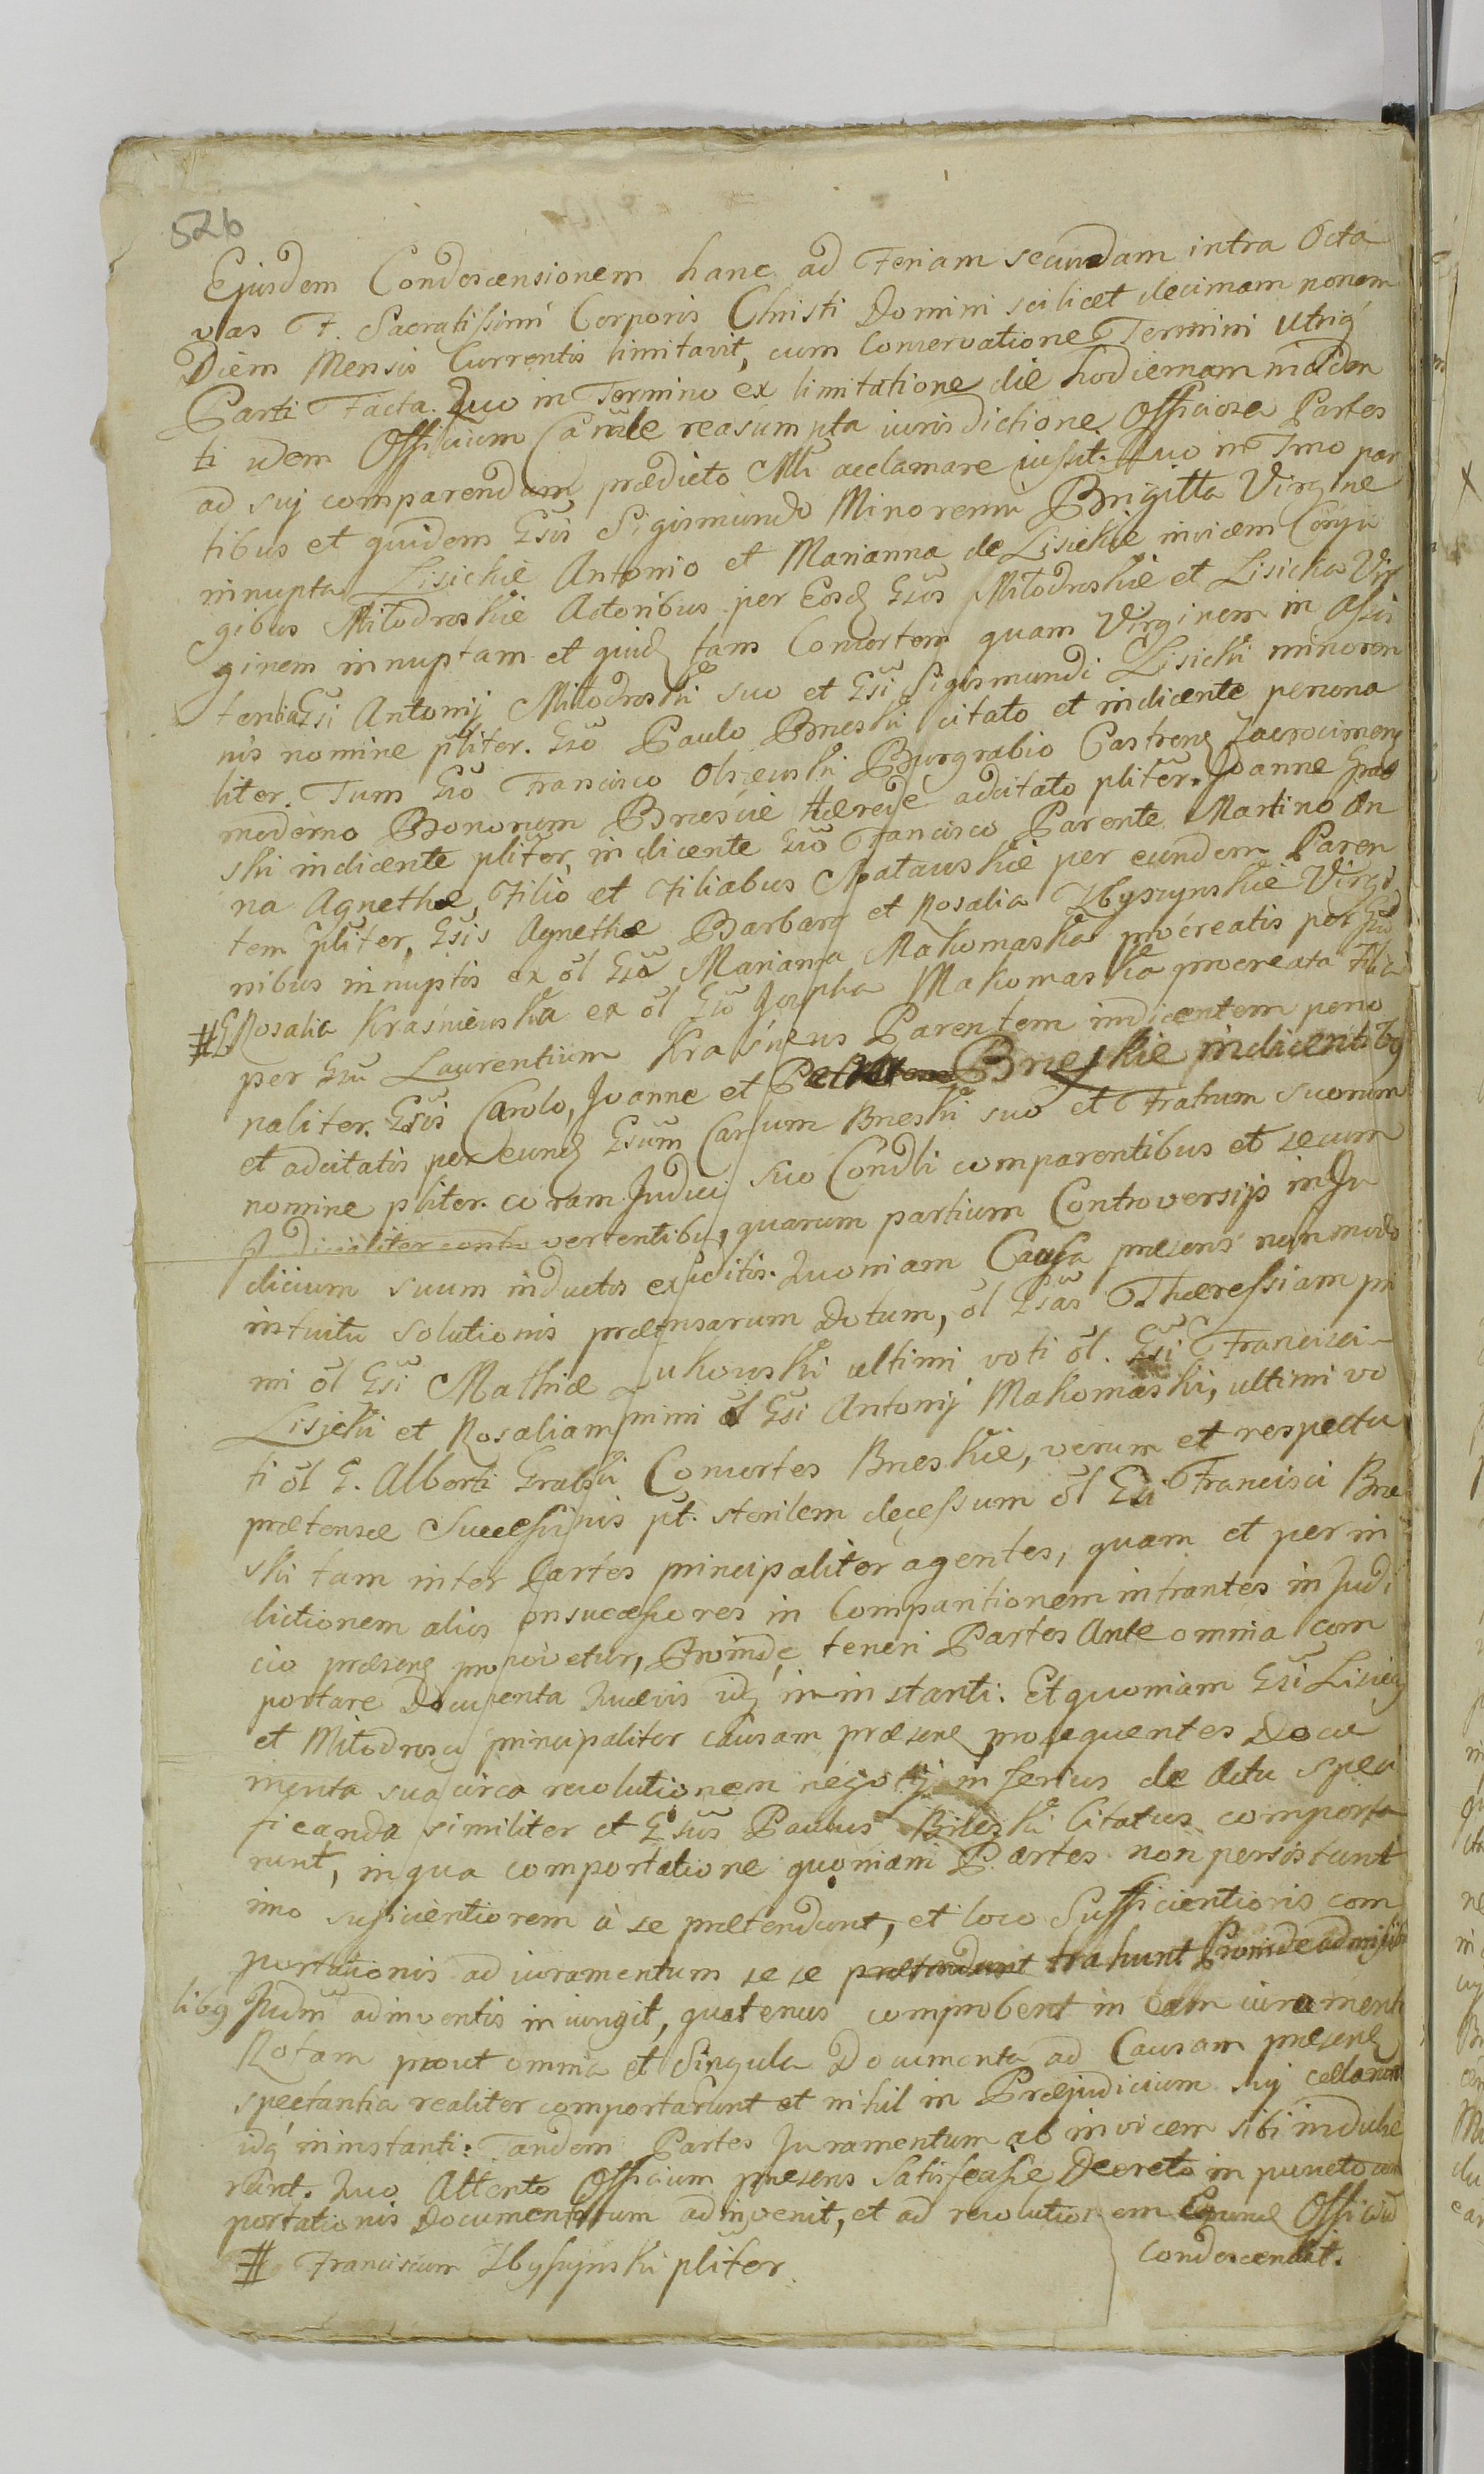 526
Ejusdem Condescensionem hanc ad Feriam secundam intra Octa
vas F. Sacratissimi Corporis Christi Domini scilicet decimam nonam
Diem Mensis Currentis limitavit, cum Conservatione Termini utriq
Parti Facta. Quo in Termino ex limitatione die hodiernam inciden
ti idem Officium reasumpta iurisdictione Officiose Partes
ad sui comparendum prædicto Mli acclamare iussit. Quo in Tmo par
tibus et quidem Gsis Sigismundo Minorenni Brigitta Virgine
innupta Lisickie Antonio et Marianna de Lisickie invicem Conju
gibus Miłodroskie Actoribus per Eosd Gsos Miłodroskie et Lisicka Vir
ginem innuptam et quid tam Consortem quam Virginem in Assis
tentia Gsi Antonij Miłodroski suo et Gsi Sigismundi Lisicki minoren
nis nomine pliter. Gso Paulo Brieski citato et indicente persona
liter. Tum Gso Francisco Olszewski Burgrabio Castren Zacrocimen
moderno Bonorum Hærede adcitato pliter. Joanne Grab
ski indicente pliter, indicente Gso Francisco Parente Martino An
na Agnethæ, Filio et Filiabus per eundem Paren
tem pliter, Gsis Agnethæ Barbara et Rosalia Zbyszynskie Virgi
nibus innuptis ex ol Gsa Marianna Makomaska procreatis per Gsu
# G Rosalia Kraśniewska ex ol Gso Josepha Makomaska procreata Filia
per Gsu Laurentium Parentem indicentem perso
naliter. Gsis Carolo, Joanne et Brieskie indicentibq
et adcitatis per eund Gsum Brieski suo et Fratrum suorum
nomine pliter. coram Judici suo Condli comparentibus et secum
Judicialiter contro vertentibus, quarum partium Controversijs in Ju
dicium suum inductis exauditis. Quoniam Causa præsens non modo
intuitu solutionis prætensarum Dotum, ol Gsas Theressiam pri
mi ol Gsi Mathiæ Łukowski ultimi voti ol. Gsi Francisci
Lisicki et Rosaliam primi ol Gsi Antonij Makomaski, ultimi vo
ti ol G. Alberti Grabski Consortes Brieskie, verum et respectu
prætensæ Successionis pt. sterilem decessum ol Gsi Francisci Brie
ski tam inter Partes principaliter agentes, quam et per in
dictionem alios consuccessores in Comparitionem intrantes in Judi
cio præsens promovetur, Proinde teneri Partes Ante omnia com
portare Documenta quævis idq in instanti. Et quoniam Gsi Lisiccy
et Miłodroscy principaliter causam præsens prosequentes Docu
menta sua circa resolutionem negotij inferius de Actu speci
ficanda similiter et Gsus Paulus Brieski Citatus comporta
runt, in qua comportatione quoniam Partes non persistunt
imo sufficientiorem à se prætendunt, et loco Sufficientioris com
portationis ad iuramentum se se prætendunt trahunt Proinde admissi
libq Judm adinventis iniungit, quatenus comprobent in eam iuramenti
Rotam prout omnia et Singula Documenta ad Causam præsens
spectantia realiter comportarunt et nihil in Præjudicium sui cellarunt
idq in instanti: Tandem Partes Juramentum ab invicem sibi indulse
runt. Quo Attento Officium præsens Satisfecisse Decreto in puncto com
portationis Documentorum adinvenit, et ad resolutionem Earund Officiu
condescendit.
# Franciscum Zbyszynski pliter.